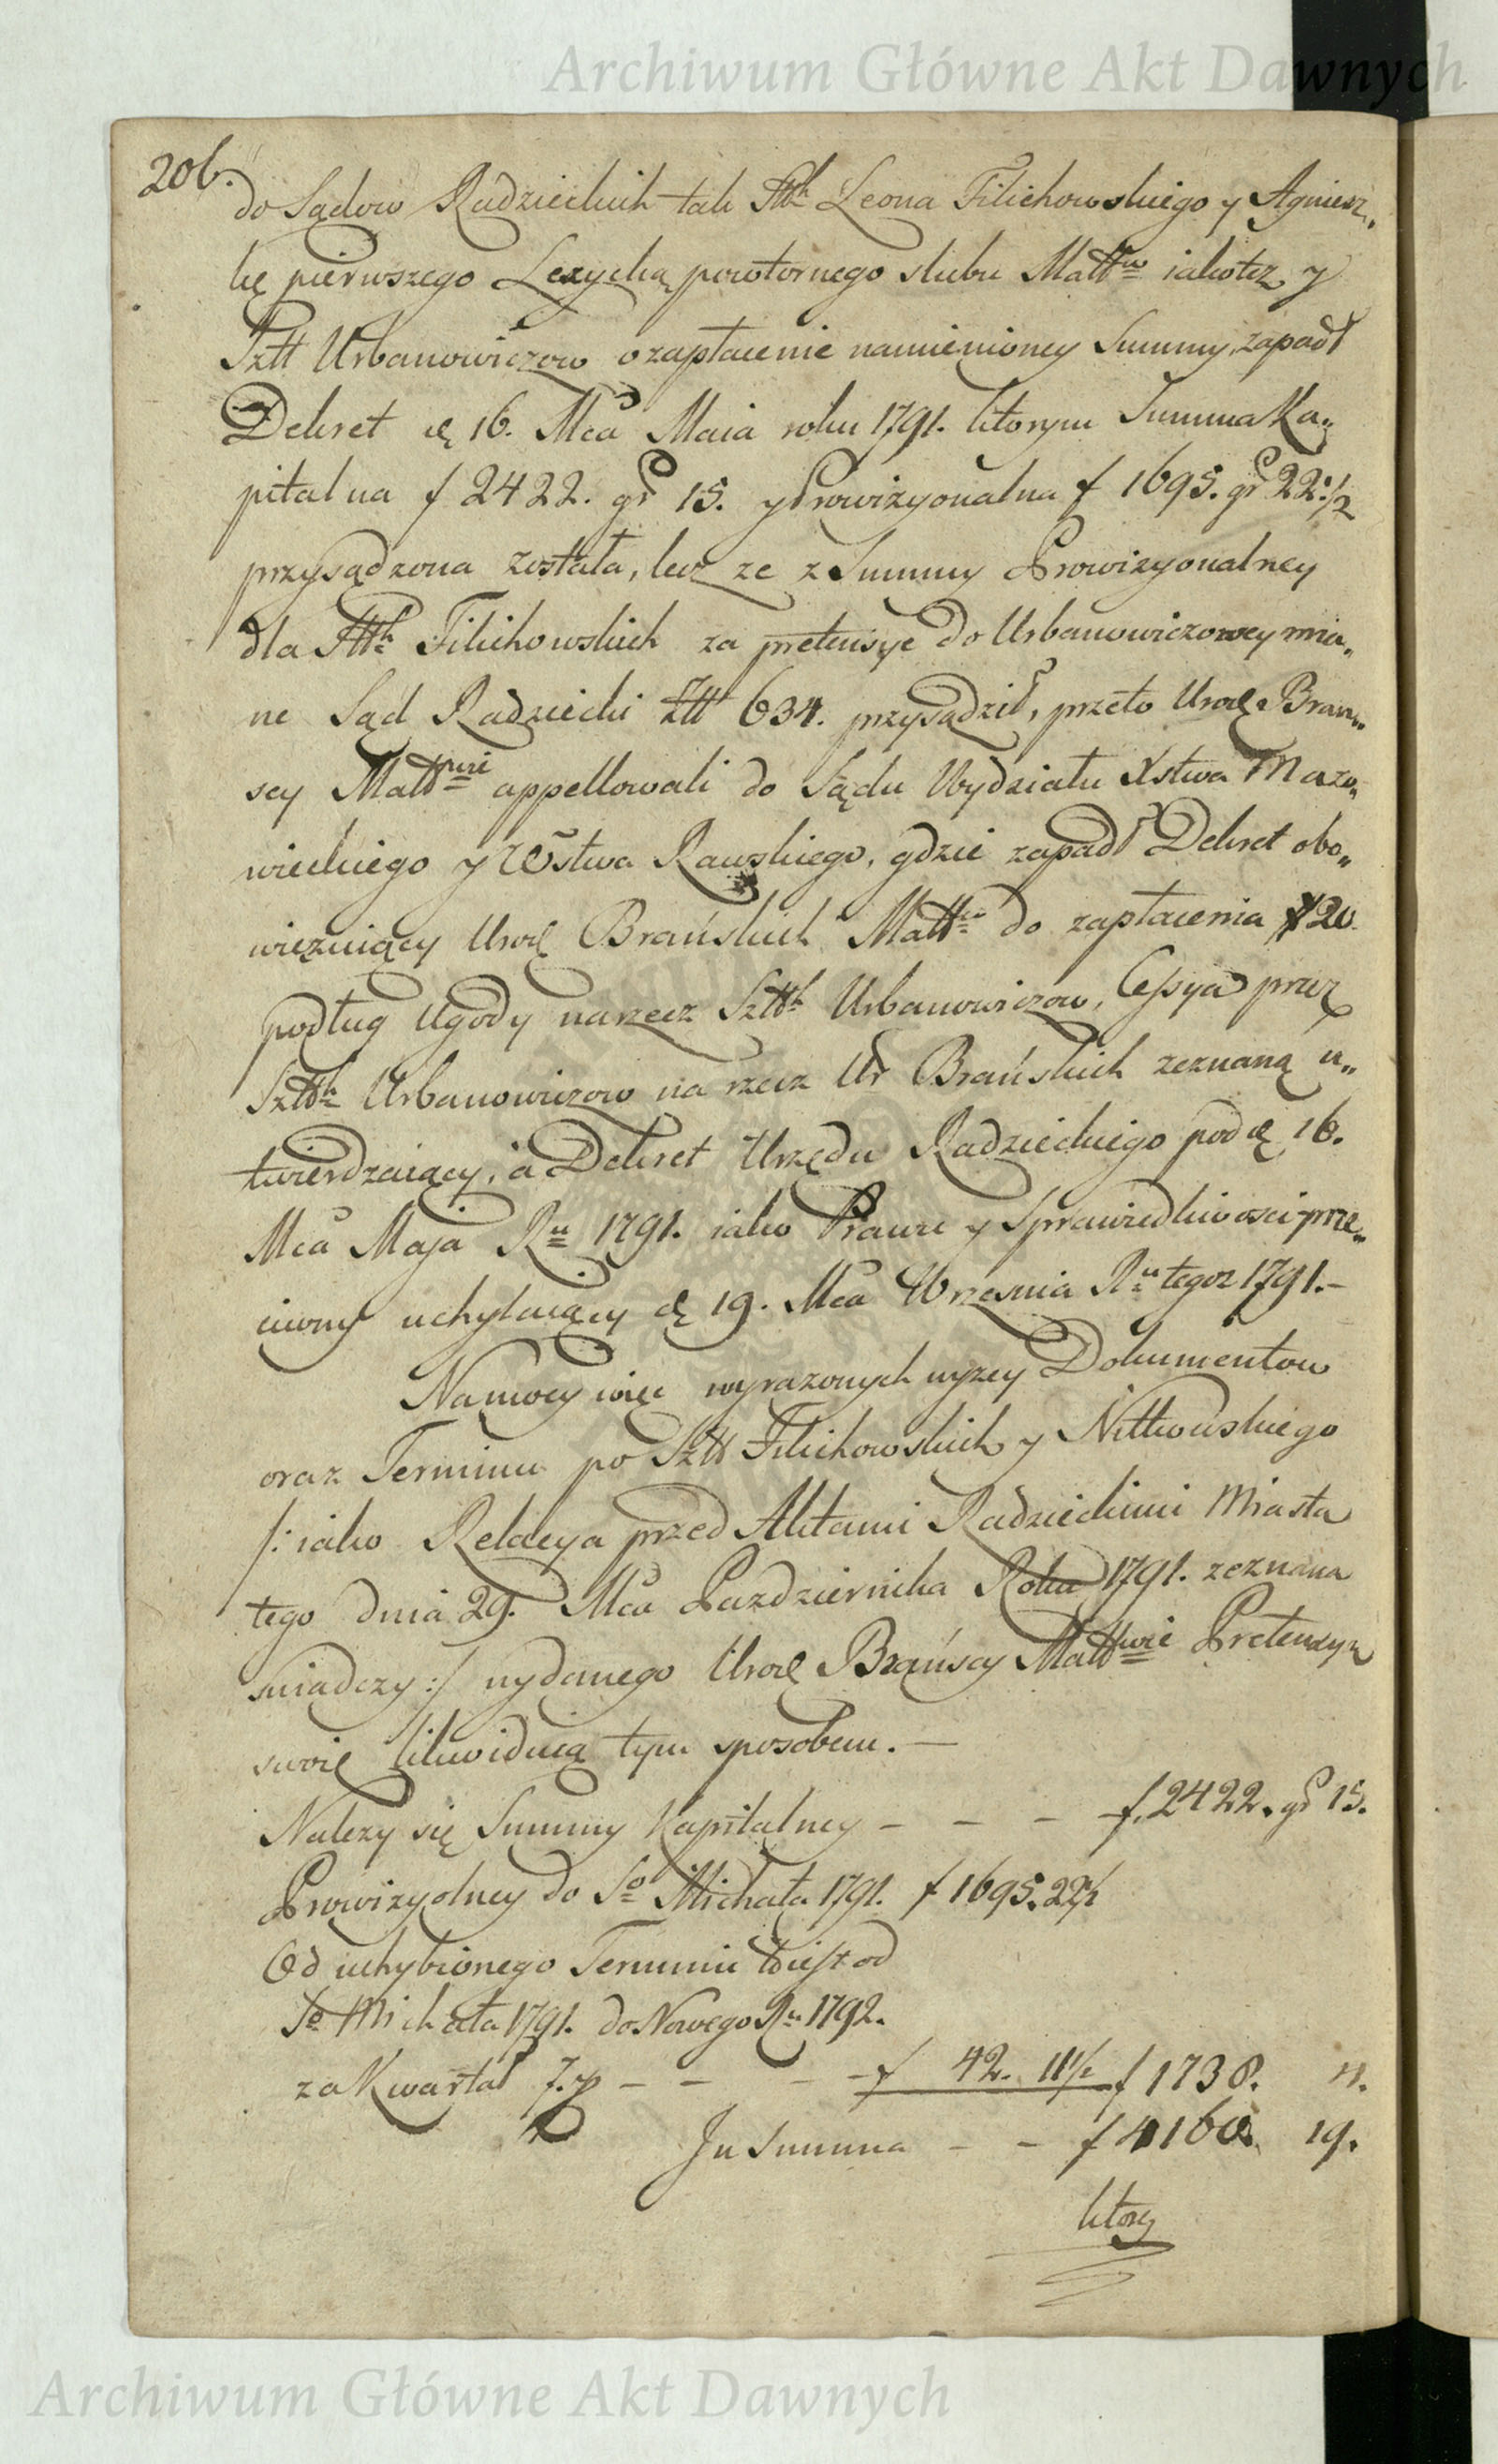 Archiwum Główne Akt Dawnych
206.
do Sądow Radzieckich tak Sttch Leona Filichowskiego y Agniesz„
kę pierwszego Lezycką powtornego slubu Małtow iakotez y
Sztt Urbanowiczow o zapłacenie namienioney Summy, zapadł
Dekret d. 16. Mca Maia roku 1791. ktorym Summa Ka„
pitalna f 2422. gr 15. y Prowizyonalna f 1695. gr 22 1/2
przysądzona została, lecz ze z Summy Prowizyonalney
dla Sttch Filichowskich za pretensye do Urbanowiczowey mia„
ne Sąd Radziecki Ztt 634. przysądził, przeto Urodz Bran„
scy Małtwie appellowali do Sądu Wydziału Xstwa Mazo„
wieckiego y Wstwa Rawskiego, gdzie zapadł Dekret obo„
wiezuiący Urodz Brańskich Małtow do zapłacenia # 20.
podług Ugody na rzecz Szttch Urbanowiczow, Cessyą przez
Szttch Urbanowiczow na rzecz Ur Brańskich zeznaną u„
twierdzaiący, a Dekret Urzędu Radzieckiego pod d. 16.
Mca Maja Ru 1791. iako Prawu y Sprawiedliwosci prze„
ciwny uchylaiący d. 19. Mca Wrzesnia Ru tegoz 1791.—
Na mocy więc wyrazonych wyzey Dokumentow
oraz Terminu po Sztt Filichowskich y Nitkowskiego
/: iako Relacya przed Aktami Radzieckimi Miasta
tego dnia 29. Mca Pazdziernika Roku 1791. zeznana
swiadczy :/ wydanego Urodz Brańscy Małtwie Pretensyę
swoię likwiduią tym sposobem. —
Nalezy się Summy Kapitalney — — — f. 2422. gr 15.
Prowizyolney do So Michała 1791. f 1695. 22 1/2
Od uchybionego Terminu to iest od
So Michała 1791. do Nowego Ru 1792.
za Kwartał 7. p — — — — f 42. 11 1/2 f 1738. 4.
In Summa — — f 4160. 19.
ktorą
Archiwum Główne Akt Dawnych